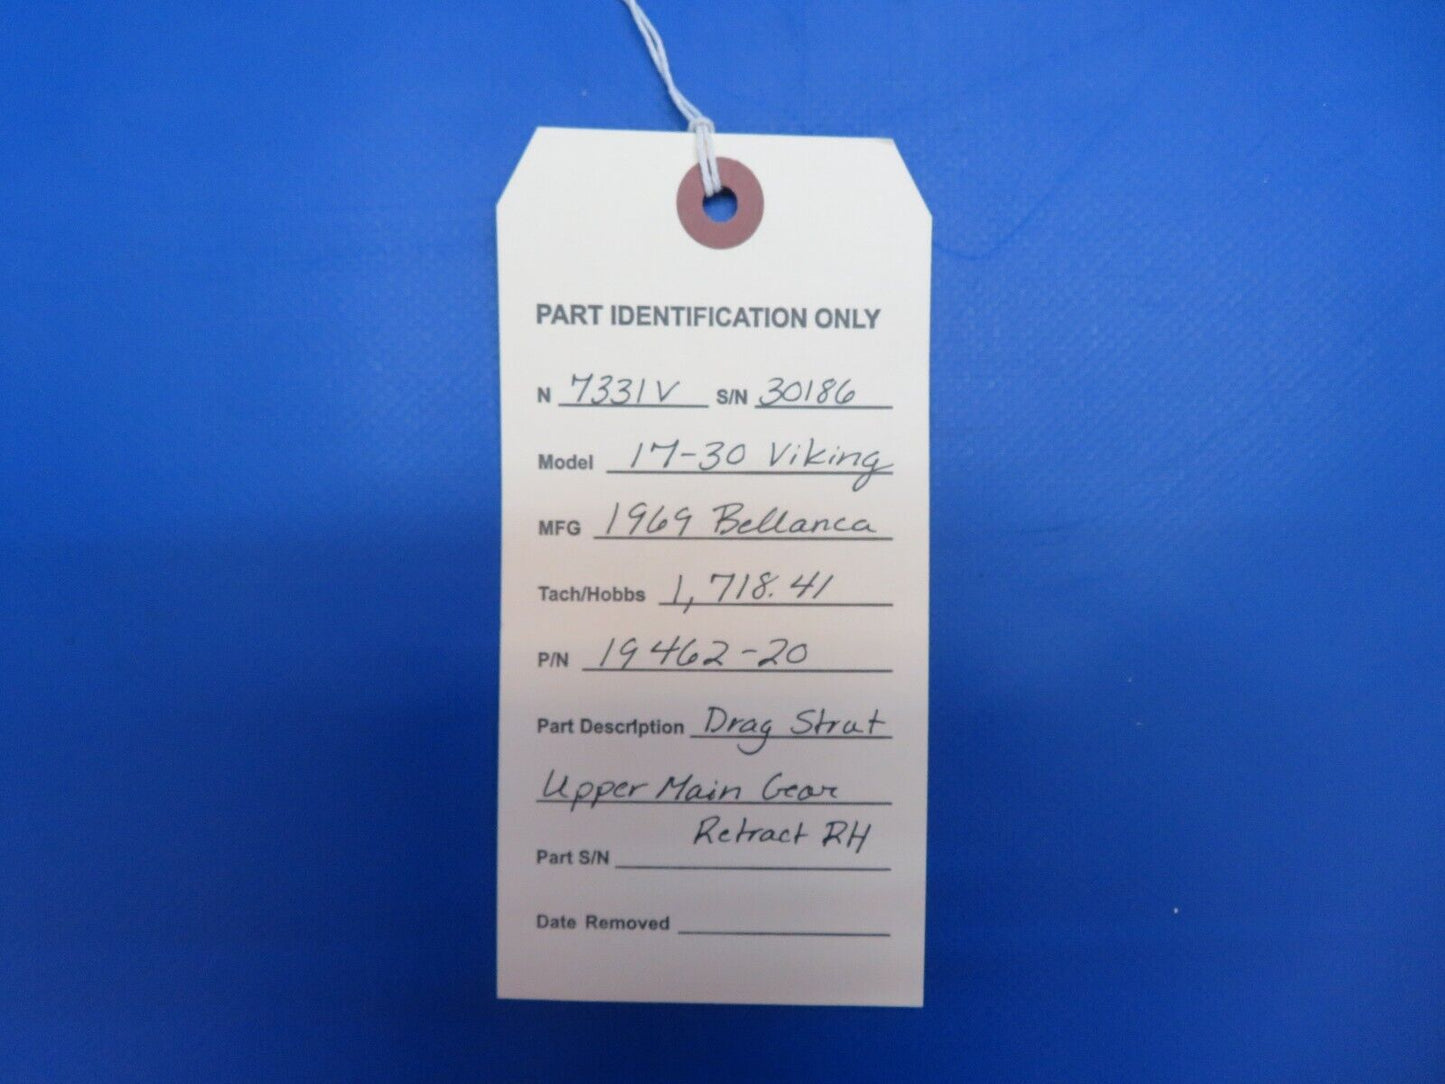 PART IDENTIFICATION ONLY
N 7331V S/N 30186
Model 17-30 Viking
MFG 1969 Bellanca
Tach/Hobbs 1,718.41
P/N 19462-20
Part Description Drag Strut
Upper Main Gear
Retract RH
Part S/N
Date Removed